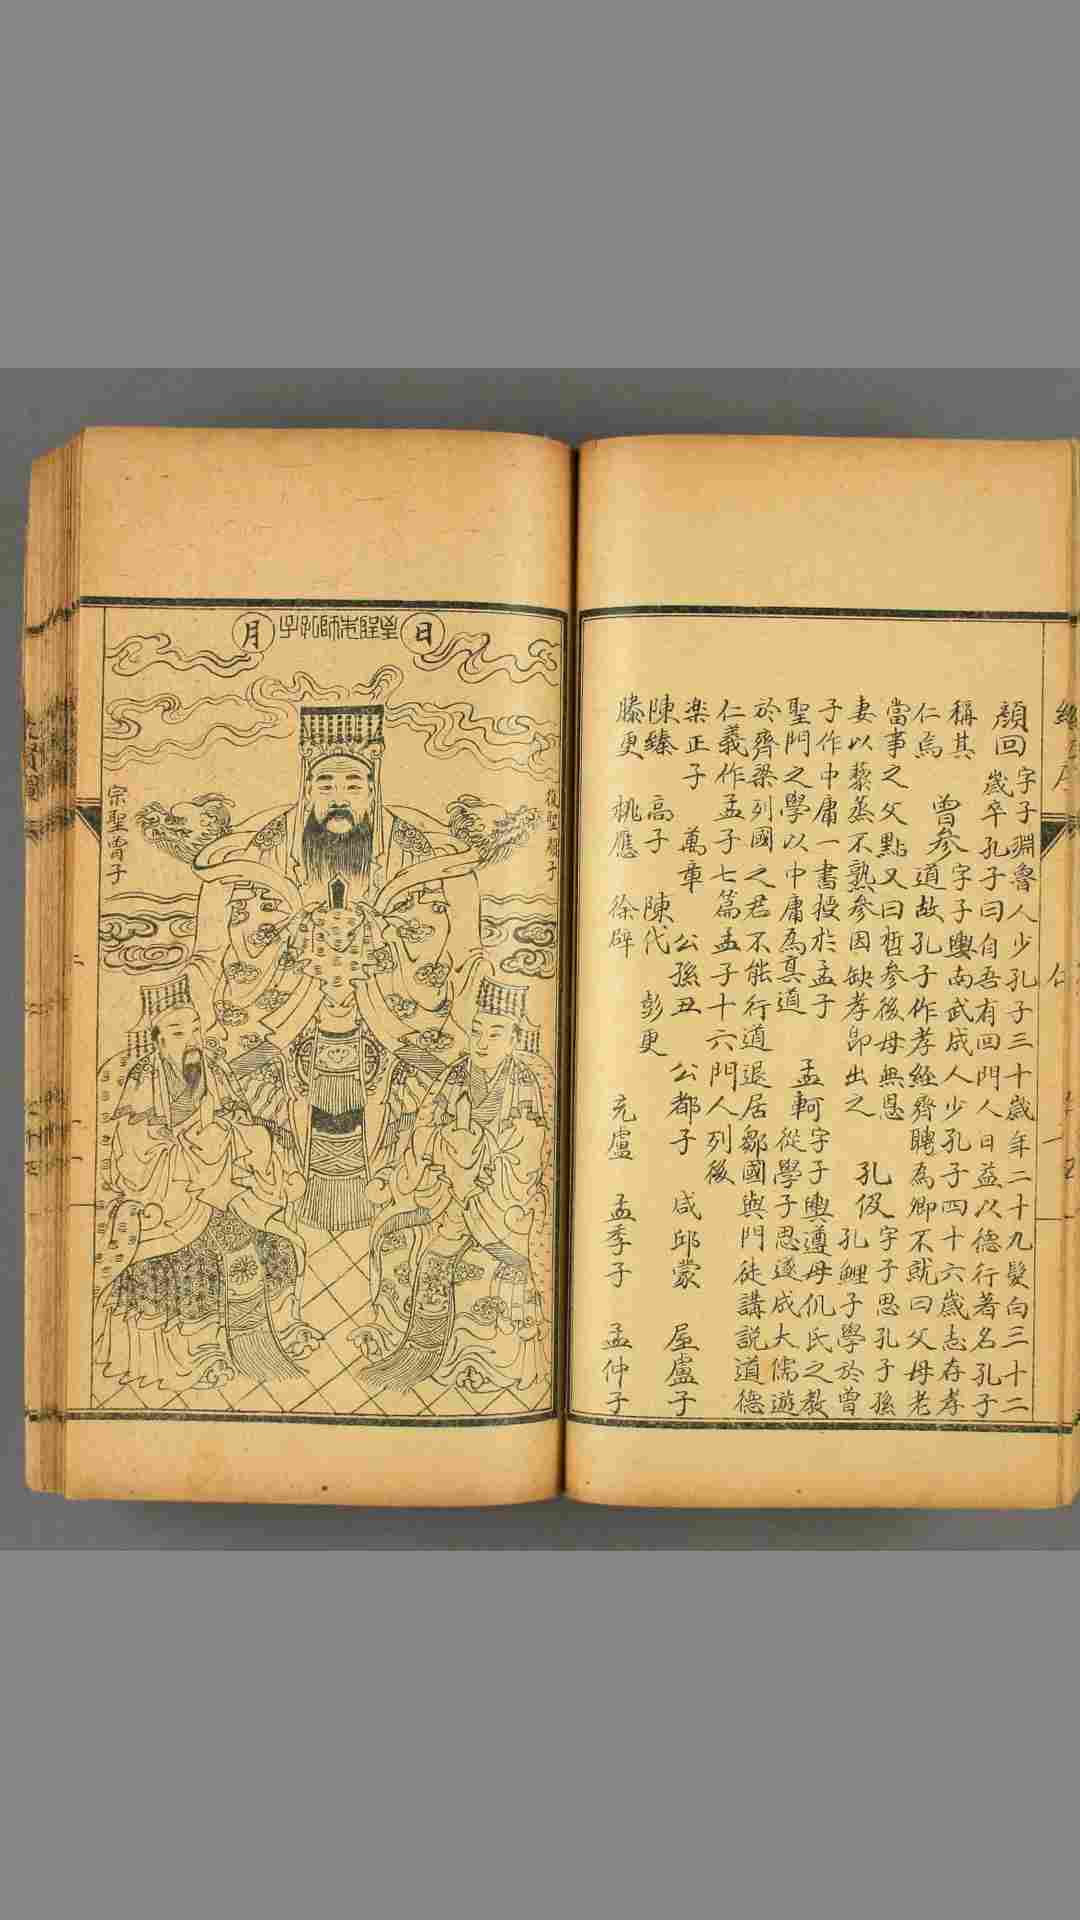 顏回
字子淵魯人少孔子三十歲年二十九髮白三十二
歲卒孔子曰自吾有回門人日益以德行著名孔子
稱其
仁焉
曾參
字子輿南武成人少孔子四十六歲志存孝
道故孔子作孝經齊聘為卿不就曰父母老
當事之父點又曰晳參後母無恩
妻以藜蒸不熟參因缺孝卽出之
孔伋
字子思孔子孫
孔鯉子學於曾
子作中庸一書授於孟子
聖門之學以中庸為真道
孟軻
字子輿遵母仉氏之教
從學子思遂成大儒遊
於齊梁列國之君不能行道退居鄒國與門徒講説道德
仁義作孟子七篇孟子十六門人列後
楽正子 萬章 公孫丑 公都子 咸邱蒙 屋盧子
陳臻 高子 陳代 彭更
滕更 桃應 徐辟 充盧 孟季子 孟仲子
日
至聖先師孔子
月
復聖顏子
宗聖曾子